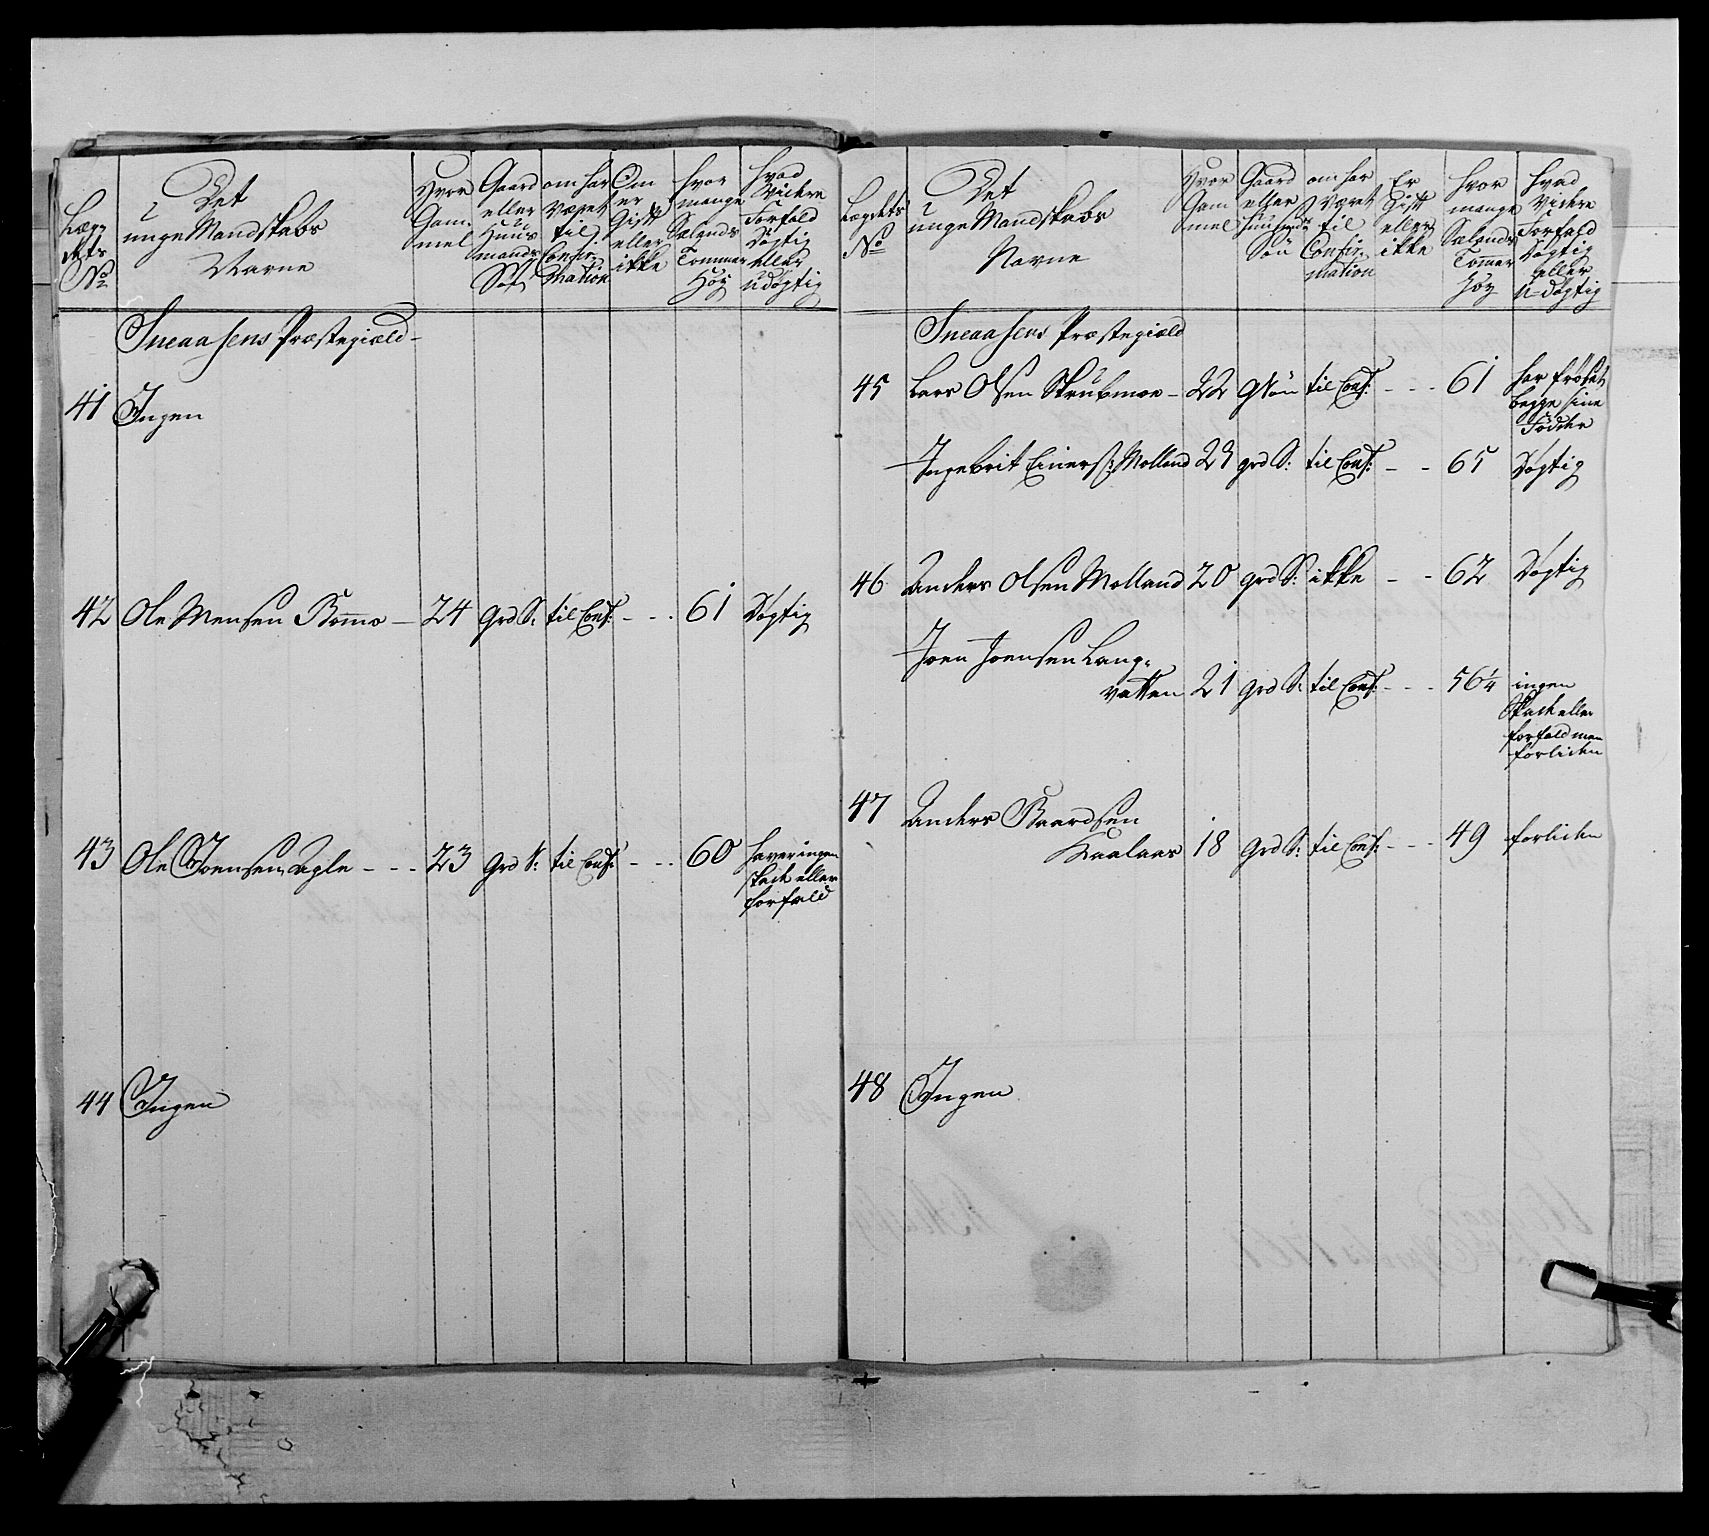 Læg-
dets
No
Det
unge Mandskabs
Navne
Hvor
Gam-
mel
Gaard
eller
Huus
mands
Søn
om har
Været
til
Confir-
mation
Om
er
Gift
eller
ikke
hvor
mange
Sælands
Tommer
Høy
hvad
Vidre
Forfald
Døgtig
eller
udøgtig
Sneaasens Præstegiæld
41 Ingen
42 Ole Mensen Bomo 24 Grd S: til Conf: - - - 61 Døgtig
43 Ole Joensen Agle - - - 23 Grd S: til Conf: - - - 60 haver ingen
skade eller
forfald
44 Ingen
Lægdets
No
Det
unge Mandskabs
Navne
Hvor
Gam
mel
Gaard
eller
Søn
om har
Været
til
Confir-
mation
Er
Gift
eller
ikke
hvor
mange
Sælands
Tommer
høy
hvad
Vidre
Forfald
Døgtig
eller
u-døgtig
Sneaasens Præstegiæld
45 Lars Olsen Strubmoe - 22 til Conf: - - - 61 har frosset
begge sine
Fødder
Ingebrit Einers: Molland 21 grd S: til Conf: - - 65 Døgtig
46 Anders Olsen Molland 20 grd S: ikke - - 62 Døgtig
Joen Joensen Lang-
vatten 21 grd S: til Conf: - - - 56 1/4 ingen
skade eller
forfald men
forliden
47 Anders Baardsen
Kraalaas 18 Grd S: til Conf: - - - 49 forliden
48 Ingen